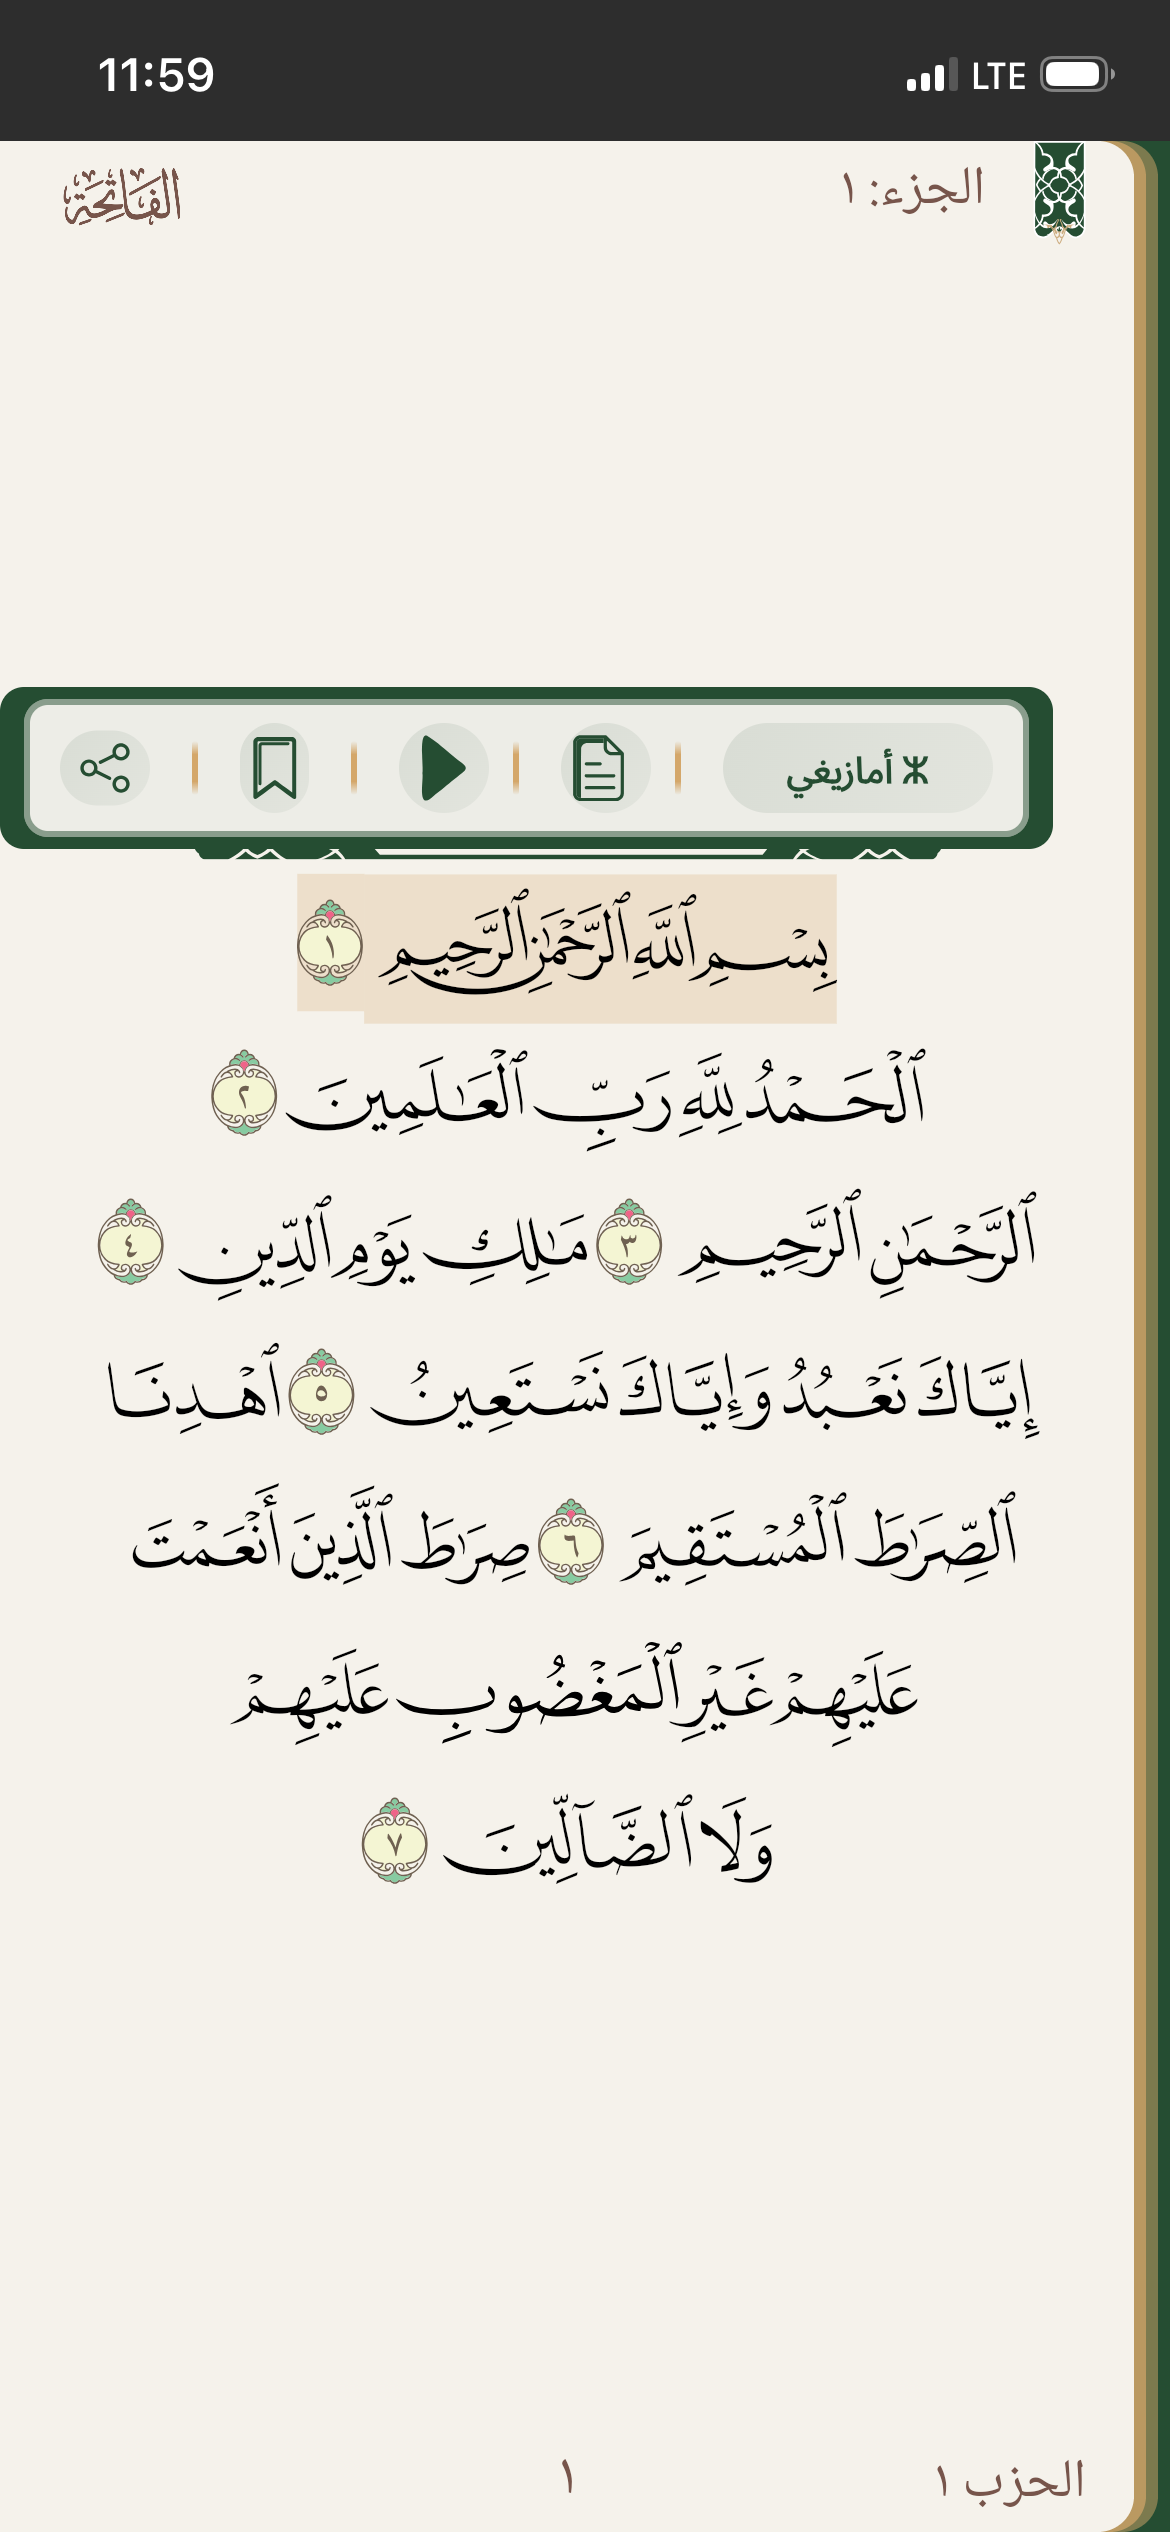 11:59 LTE
الجزء: ١ الفَاتِحَة
ⵣ أمازيغي
بِسْمِ ٱللَّهِ ٱلرَّحْمَٰنِ ٱلرَّحِيمِ ١
ٱلْحَمْدُ لِلَّهِ رَبِّ ٱلْعَٰلَمِينَ ٢
ٱلرَّحْمَٰنِ ٱلرَّحِيمِ ٣ مَٰلِكِ يَوْمِ ٱلدِّينِ ٤
إِيَّاكَ نَعْبُدُ وَإِيَّاكَ نَسْتَعِينُ ٥ ٱهْدِنَا
ٱلصِّرَٰطَ ٱلْمُسْتَقِيمَ ٦ صِرَٰطَ ٱلَّذِينَ أَنْعَمْتَ
عَلَيْهِمْ غَيْرِ ٱلْمَغْضُوبِ عَلَيْهِمْ
وَلَا ٱلضَّآلِّينَ ٧
الحزب ١ ١